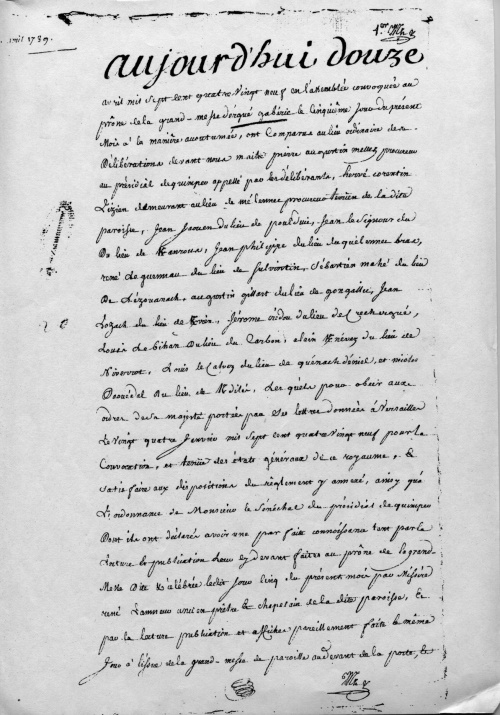 avril 1789.
1er
aujourd'hui douze
avril mil sept cent quatre vingt neuf en l'assemblée convoquée au
prône de la grand-messe d'ergué gabéric le cinquième jour du présent
Mois à la manière accoutumée, ont comparus au lieu ordinaire de
Délibérations devant nous maitre pierre augustin procureur
au présidial de quimper appellé par les délibérants, hervé corentin
Lizien demeurant au lieu de mélennec procureur terrien de la dite
paroisse, Jean du lieu de pouldui, Jean le Signour du
Du lieu de, Jean philippe du lieu de quelennec bras,
rené le guennou du lieu de Sulvintin, Sébastien mahé du lieu
De, augustin gillart du lieu de gongallic, Jean
Lozach du lieu de, Jérome du lieu de
Louis Le bihan Du lieu du, alain du lieu de
, Louis le Calvez du lieu de quénach déniel, et nicolas
du lieu de, Les quels pour obéir aux
ordres de Sa majesté portés par Ses lettres données à Versailles
Le vingt quatre Janvier mil sept cent quatre vingt neuf pour la
Convocation, et tenue des états généraux de ce royaume, &
Satisfaire aux dispositions du règlement y annexé, ainsy que
L'ordonnance de Monsieur le Sénéchal du présidial de quimper
Dont ils ont déclaré avoir une parfaite connoissance tant par la
Lecture & publication cy devant faites au prône de la grand
Messe Dite & célébrée le dit jour cinq du present mois par
rené ancien prêtre & chapelain de la dite paroisse, &
par la lecture publication et affiches pareillement faite le même
Jour à l'issue de la grand-messe de paroisse au devant de la porte, &